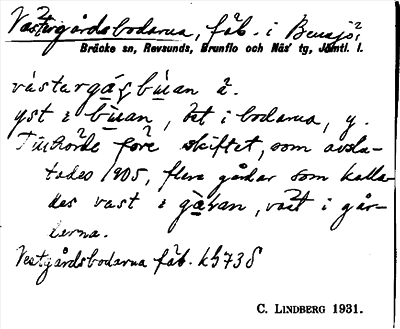 Västergårdsbodarna, fäb. i Bensjö,
Bräcke sn, Revsunds, Brunflo och Näs' tg, Jämtl. l.
västergåṣbu̇an ä.
yst i bu̇an, öst i bodarna, y.
Tillhörde före skiftet, som avslu-
tades 1905, flera gårdar som kalla-
des vast i gåṛan, väst i går-
darna.
Vestgårdsbodarna fäb. Lh 738
C. LINDBERG 1931.